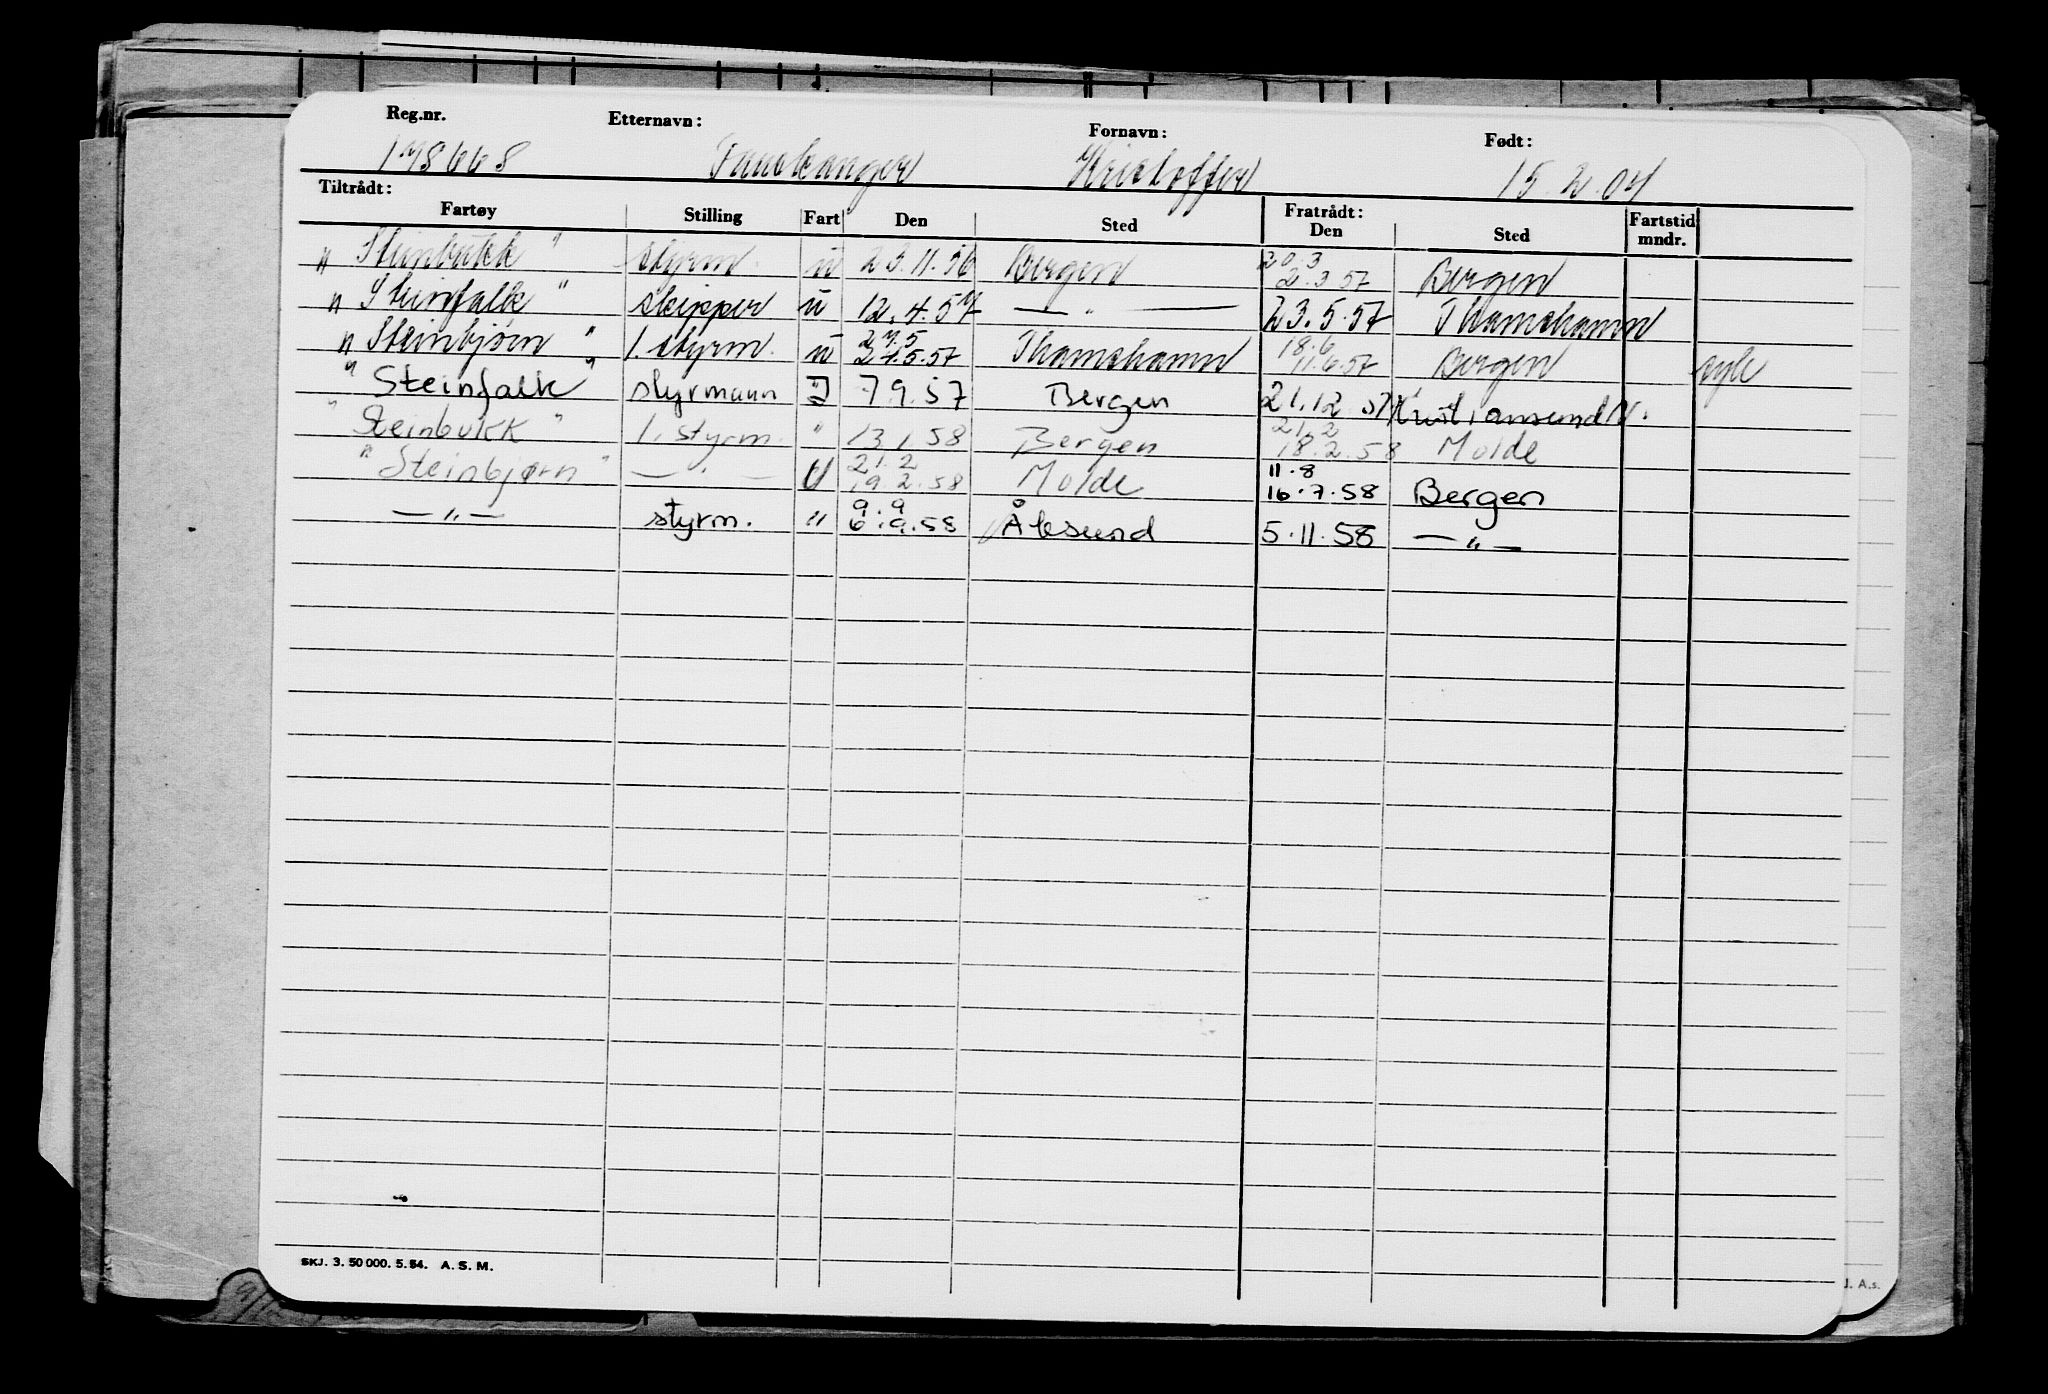 Reg.nr. Etternavn: Fornavn: Født:
178668 Fauskanger Kristoffer 15.2.04
Tiltrådt: Fratrådt:
Fartøy Stilling Fart Den Sted Den Sted Fartstid mndr.
20.3
"Steinbukk" styrm. u 23.11.56 Bergen 2.3.57 Bergen
"Steinfalk" skipper u 12.4.57 — " — 23.5.57 Thamshamn
27.5 18.6
"Steinbjørn" 1. styrm. u 24.5.57 Thamshamn 11.6.57 Bergen syk
"Steinfalk" styrmann 7.9.57 Bergen 21.12.57 Kristiansund N.
21.2
"Steinbukk" 1. styrm. " 13.1.58 Bergen 18.2.58 Molde
21.2 11.8
"Steinbjørn" — " — U 19.2.58 Molde 16.7.58 Bergen
9.9
— " — styrm. " 6.9.58 Ålesund 5.11.58 — " —
SKJ. 3. 50 000. 5. 54. A. S. M.
J. A.s.